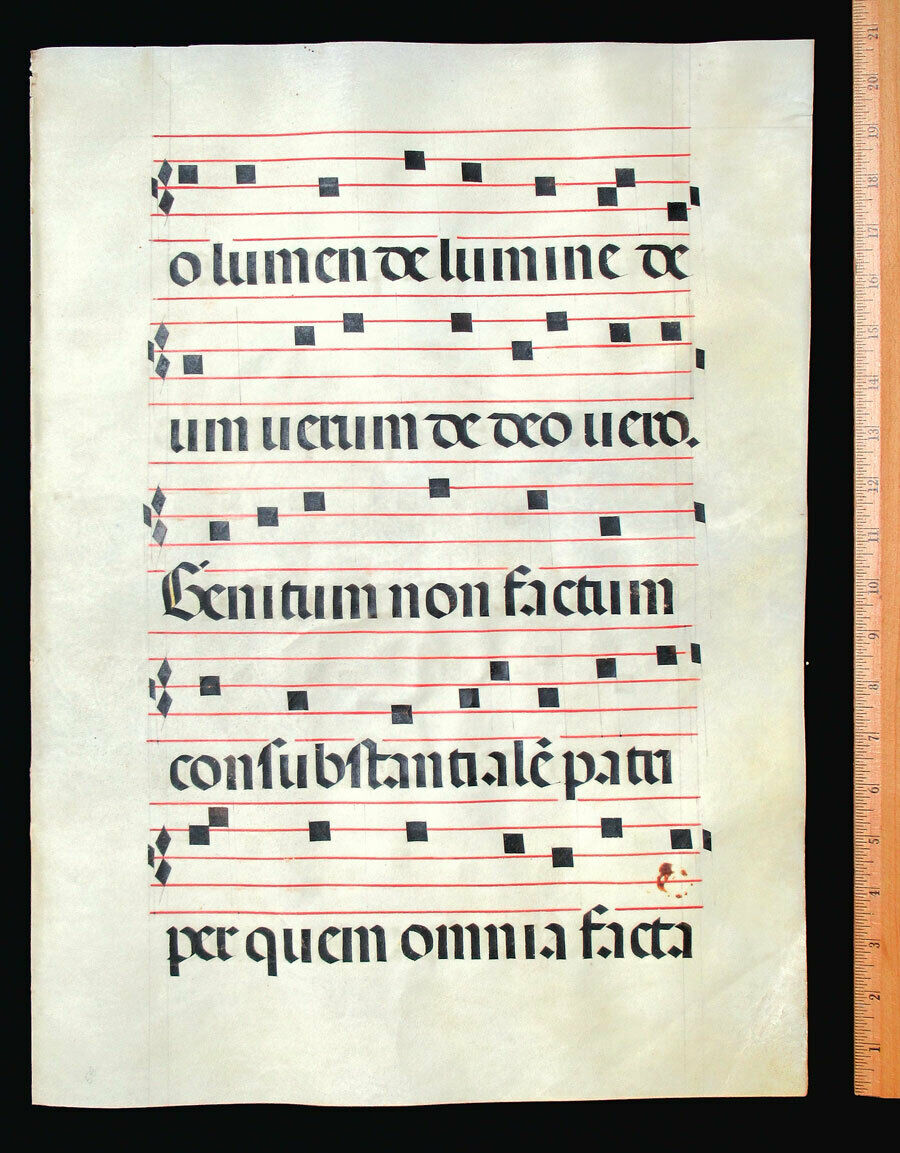 o lumen de lumine de
um uerum de deo uero.
Genitum non factum
conſubſtantialē patri
per quem omnia facta
21
20
19
18
17
16
15
14
13
12
11
10
9
8
7
6
5
4
3
2
1